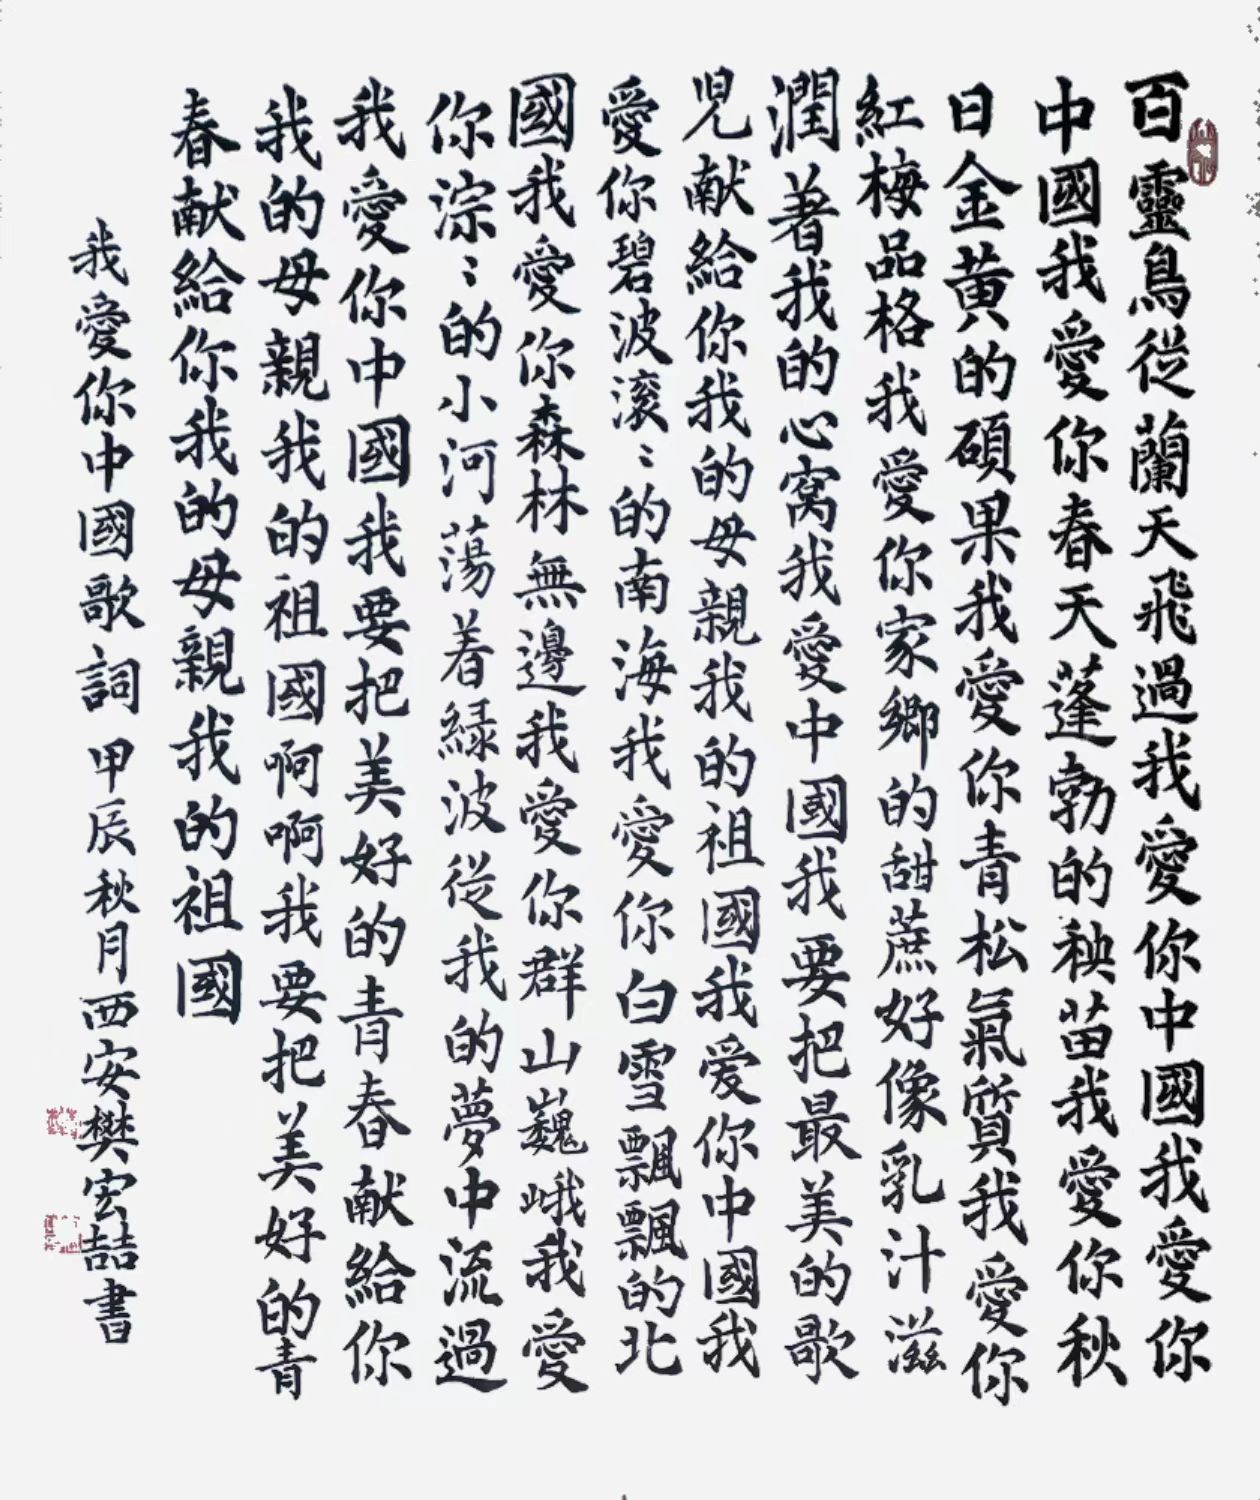 百靈鳥從蘭天飛過我愛你中國我愛你
中國我愛你春天蓬勃的秧苗我愛你秋
日金黄的碩果我愛你青松氣質我愛你
紅梅品格我愛你家鄉的甜蔗好像乳汁滋
潤着我的心窩我愛中國我要把最美的歌
児献給你我的母親我的祖國我爱你中國我
愛你碧波滚〻的南海我愛你白雪飄飄的北
國我愛你森林無邊我愛你群山巍峨我愛
你淙〻的小河蕩着緑波從我的夢中流過
我愛你中國我要把美好的青春献給你
我的母親我的祖國啊啊我要把美好的青
春献給你我的母親我的祖國
我愛你中國歌詞 甲辰秋月西安樊宏喆書